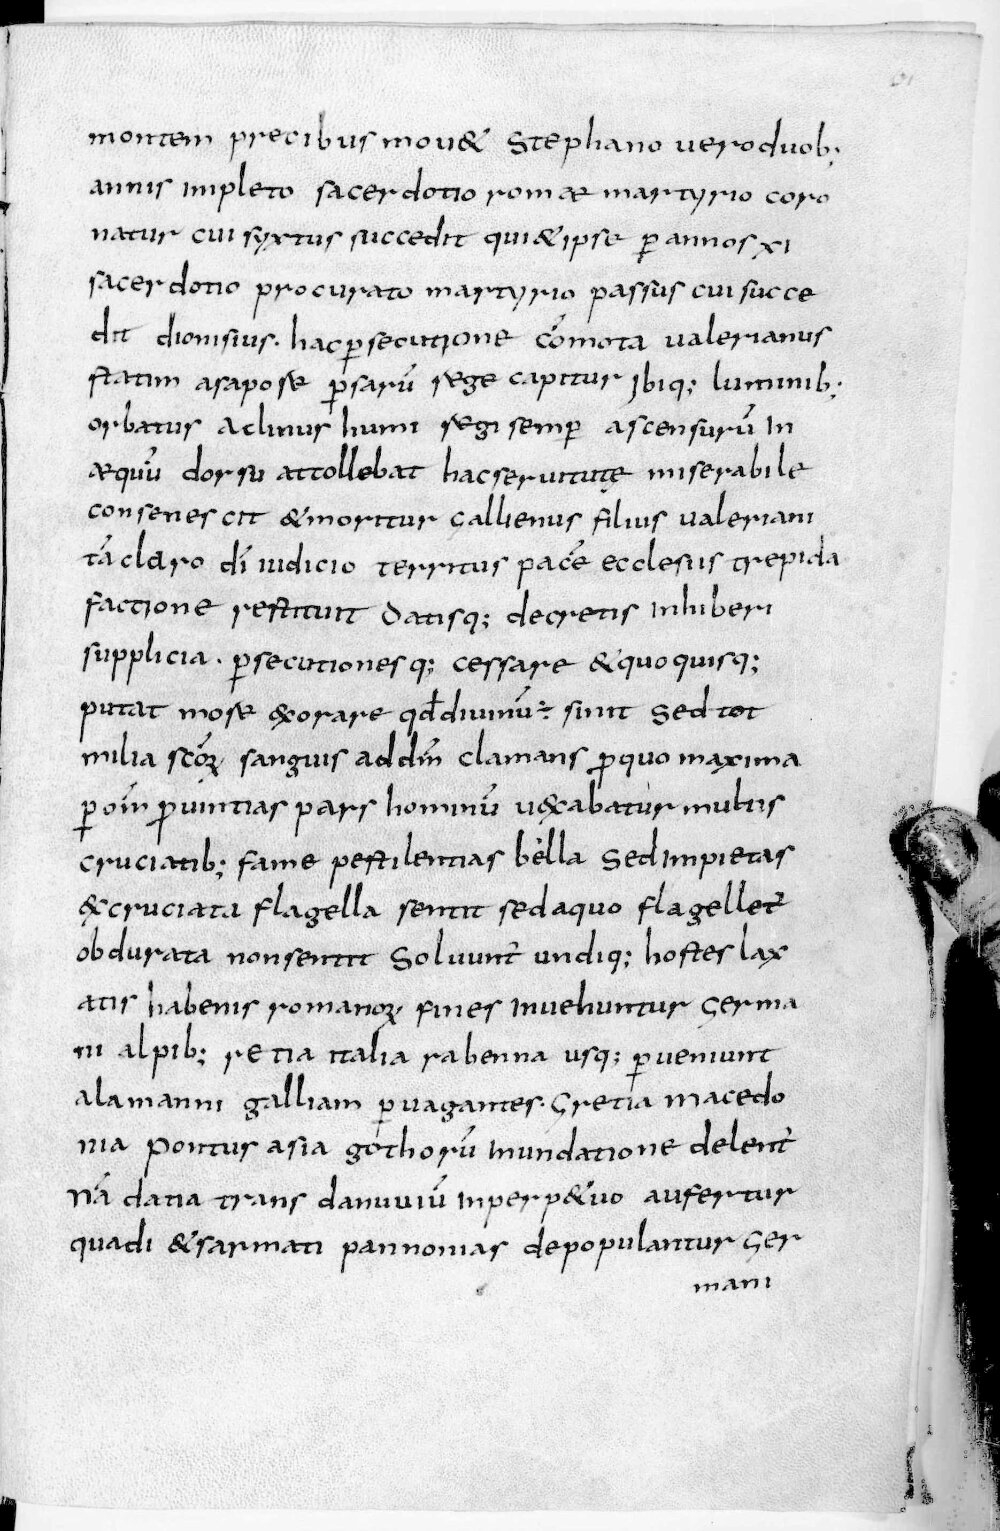 montem precibus mou& Stephano uero duob;
annis impleto sacerdotio romæ martyrio coro
natur cui syxtus succedit qui & ipse ꝑ annos xi
sacerdotio procurato martyrio passus cui succe
dit dionisius. hac ꝑsecutione cōmota ualerianus
statim a sapore ꝑsarū rege capitur ibiq; luminib;
orbatus aclinus humi regi semꝑ ascensurū in
æquū dorsu attollebat hac seruitute miserabile
consenescit & moritur gallienus filius ualeriani
tā claro dī iudicio territus pacē ecclesiis trepida
factione restituit datisq; decretis inhiberi
supplicia. ꝑsecutionesq; cessare & quo quisq;
putat more exorare qđ diuinū÷ sinit sed tot
milia scōꝝ sanguis ad dm̄ clamans ꝑ quo maxima
ꝑ om̄ ꝓuintias pars hominū uexabatur multis
cruciatib; fame pestilentias bella sed impietas
excruciata flagella sentit sed a quo flagellet̄
obdurata non sentit Soluunt̄ undiq; hostes lax
atis habenis romanoꝝ fines inuehuntur germa
ni alpib; retia italia rabenna usq; ꝑueniunt
alamanni galliam ꝑuagantes. gretia macedo
nia pontus asia gothorū inundatione delent̄
Nā datia trans danuuiū inperp&uo aufertur
quadi & sarmati pannonias depopulantur ger
mani